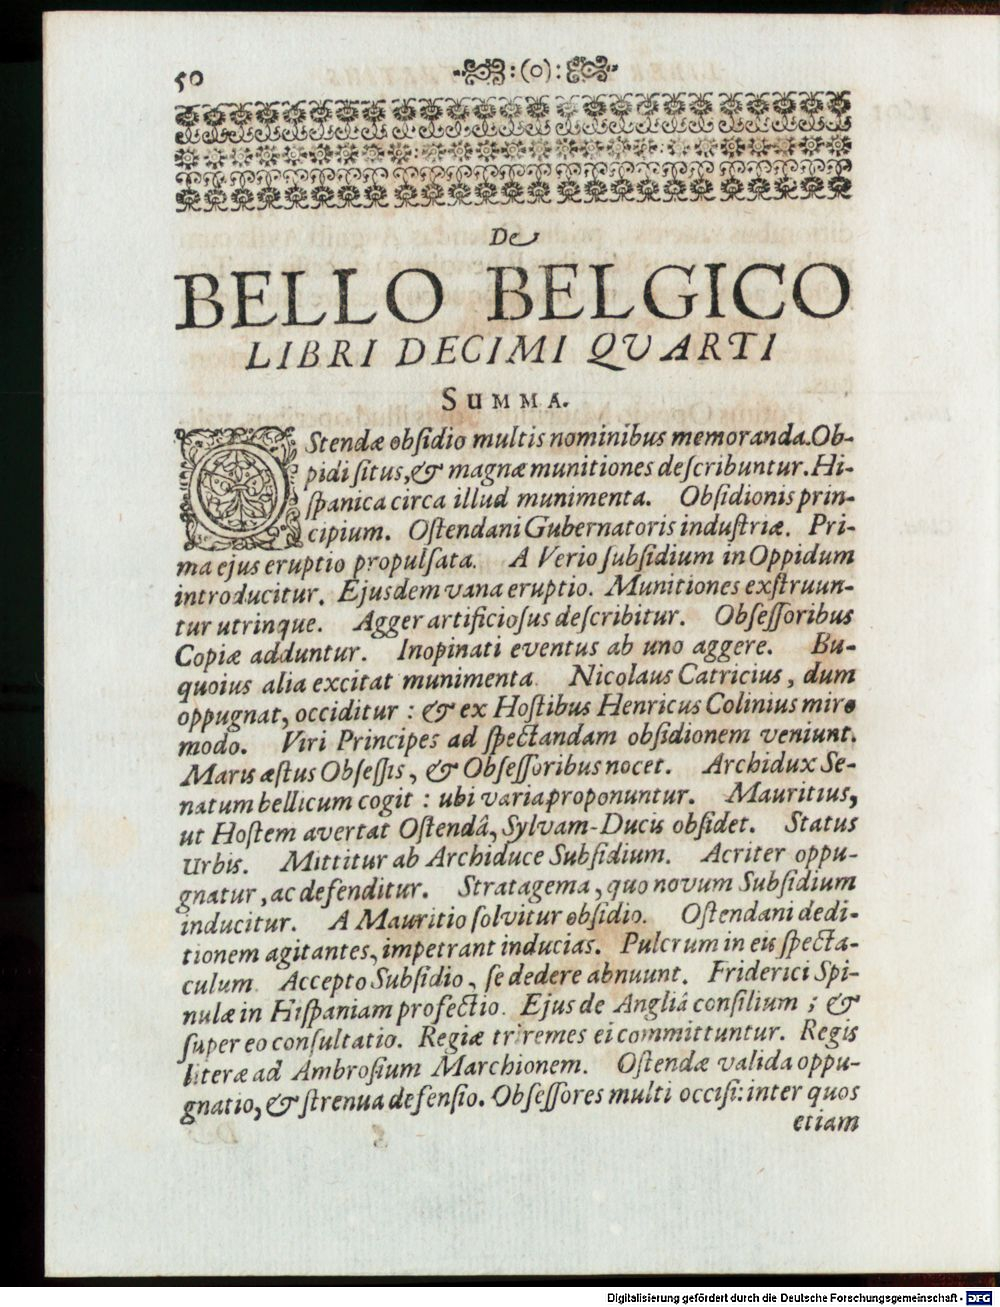 50
:(o):
De
BELLO BELGICO
LIBRI DECIMI QVARTI
SUMMA.
OStendæ obſidio multis nominibus memoranda. Ob-
pidi ſitus, & magnæ munitiones deſcribuntur. Hi-
ſpanica circa illud munimenta. Obſidionis prin-
cipium. Oſtendani Gubernatoris induſtriæ. Pri-
ma ejus eruptio propulſata. A Verio ſubſidium in Oppidum
introducitur. Ejusdem vana eruptio. Munitiones exſtruun-
tur utrinque. Agger artificioſus deſcribitur. Obſeſſoribus
Copiæ adduntur. Inopinati eventus ab uno aggere. Bu-
quoius alia excitat munimenta. Nicolaus Catricius, dum
oppugnat, occiditur: & ex Hoſtibus Henricus Colinius miro
modo. Viri Principes ad ſpectandam obſidionem veniunt.
Maris æſtus Obſeſſis, & Obſeſſoribus nocet. Archidux Se-
natum bellicum cogit: ubi varia proponuntur. Mauritius,
ut Hoſtem avertat Oſtendâ, Sylvam-Ducis obſidet. Status
Urbis. Mittitur ab Archiduce Subſidium. Acriter oppu-
gnatur, ac defenditur. Stratagema, quo novum Subſidium
inducitur. A Mauritio ſolvitur obſidio. Oſtendani dedi-
tionem agitantes, impetrant inducias. Pulcrum in eis ſpecta-
culum. Accepto Subſidio, ſe dedere abnuunt. Friderici Spi-
nulæ in Hiſpaniam profectio. Ejus de Angliâ conſilium; &
ſuper eo conſultatio. Regiæ triremes ei committuntur. Regis
literæ ad Ambroſium Marchionem. Oſtendæ valida oppu-
gnatio, & ſtrenua defenſio. Obſeſſores multi occiſi: inter quos
etiam
Digitalisierung gefördert durch die Deutsche Forschungsgemeinschaft - DFG